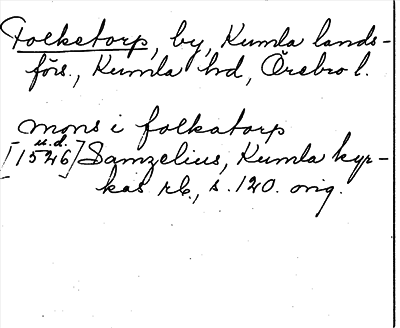 Folketorp, by, Kumla lands-
förs., Kumla hd, Örebro l.
mons i folkatorp
u.d.
[1546] Samzelius, Kumla kyr-
kas rb., s. 120. orig.